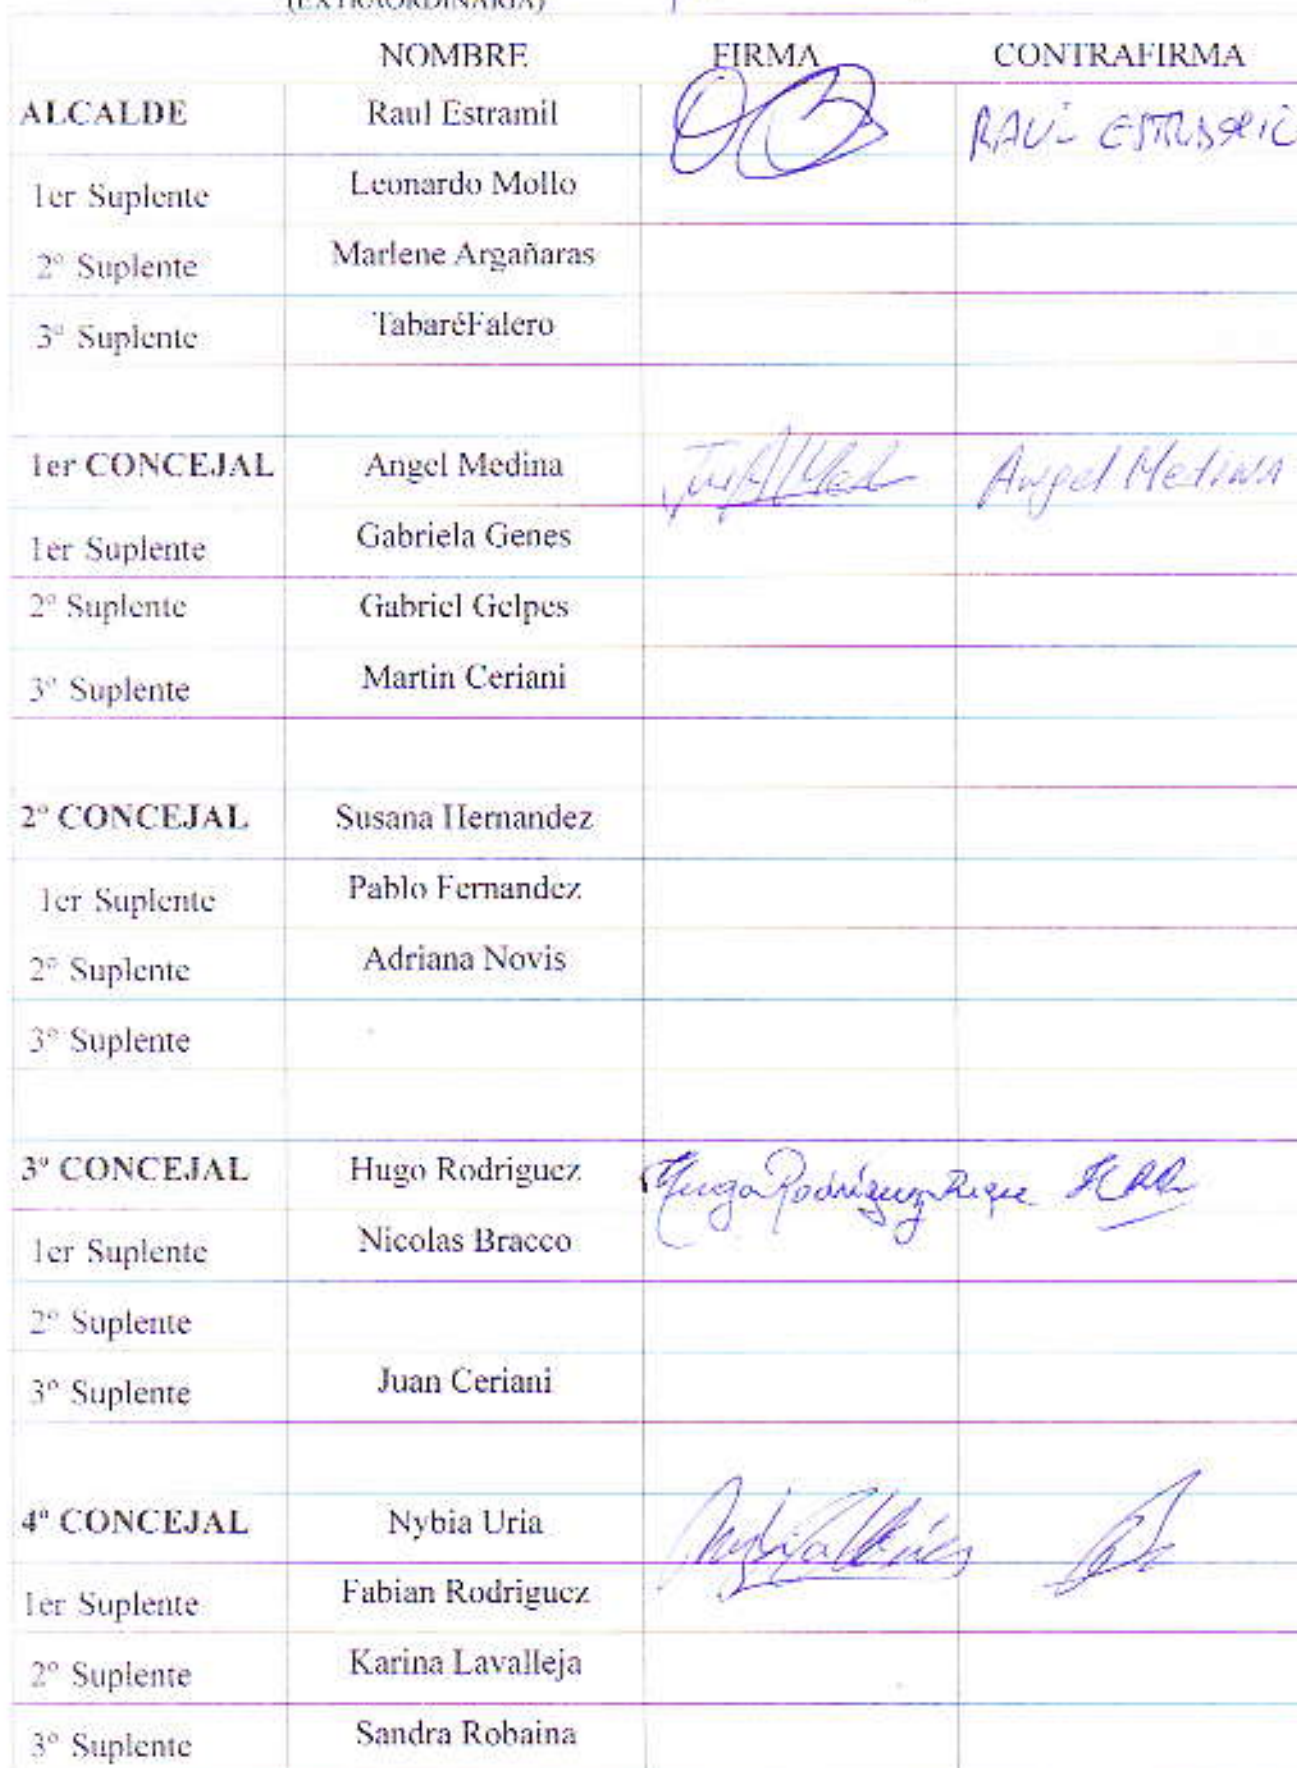 (EXTRAORDINARIA)
NOMBRE FIRMA CONTRAFIRMA
ALCALDE Raul Estramil RAUL
1er Suplente Leonardo Mollo
2º Suplente Marlene Argañaras
3º Suplente TabaréFalero
1er CONCEJAL Angel Medina Angel Medina
1er Suplente Gabriela Genes
2º Suplente Gabriel Gelpes
3º Suplente Martin Ceriani
2º CONCEJAL Susana Hernandez
1er Suplente Pablo Fernandez
2º Suplente Adriana Novis
3º Suplente
3º CONCEJAL Hugo Rodriguez Hugo Rodríguez
1er Suplente Nicolas Bracco
2º Suplente
3º Suplente Juan Ceriani
4º CONCEJAL Nybia Uria
1er Suplente Fabian Rodriguez
2º Suplente Karina Lavalleja
3º Suplente Sandra Robaina